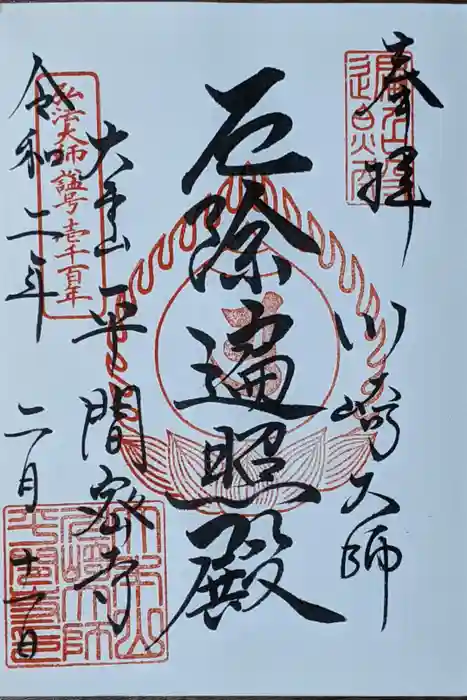 奉拝
川崎大師
厄除遍照殿
大本山
平間密寺
弘法大師諡号壱千百年
令和二年
二月十一日